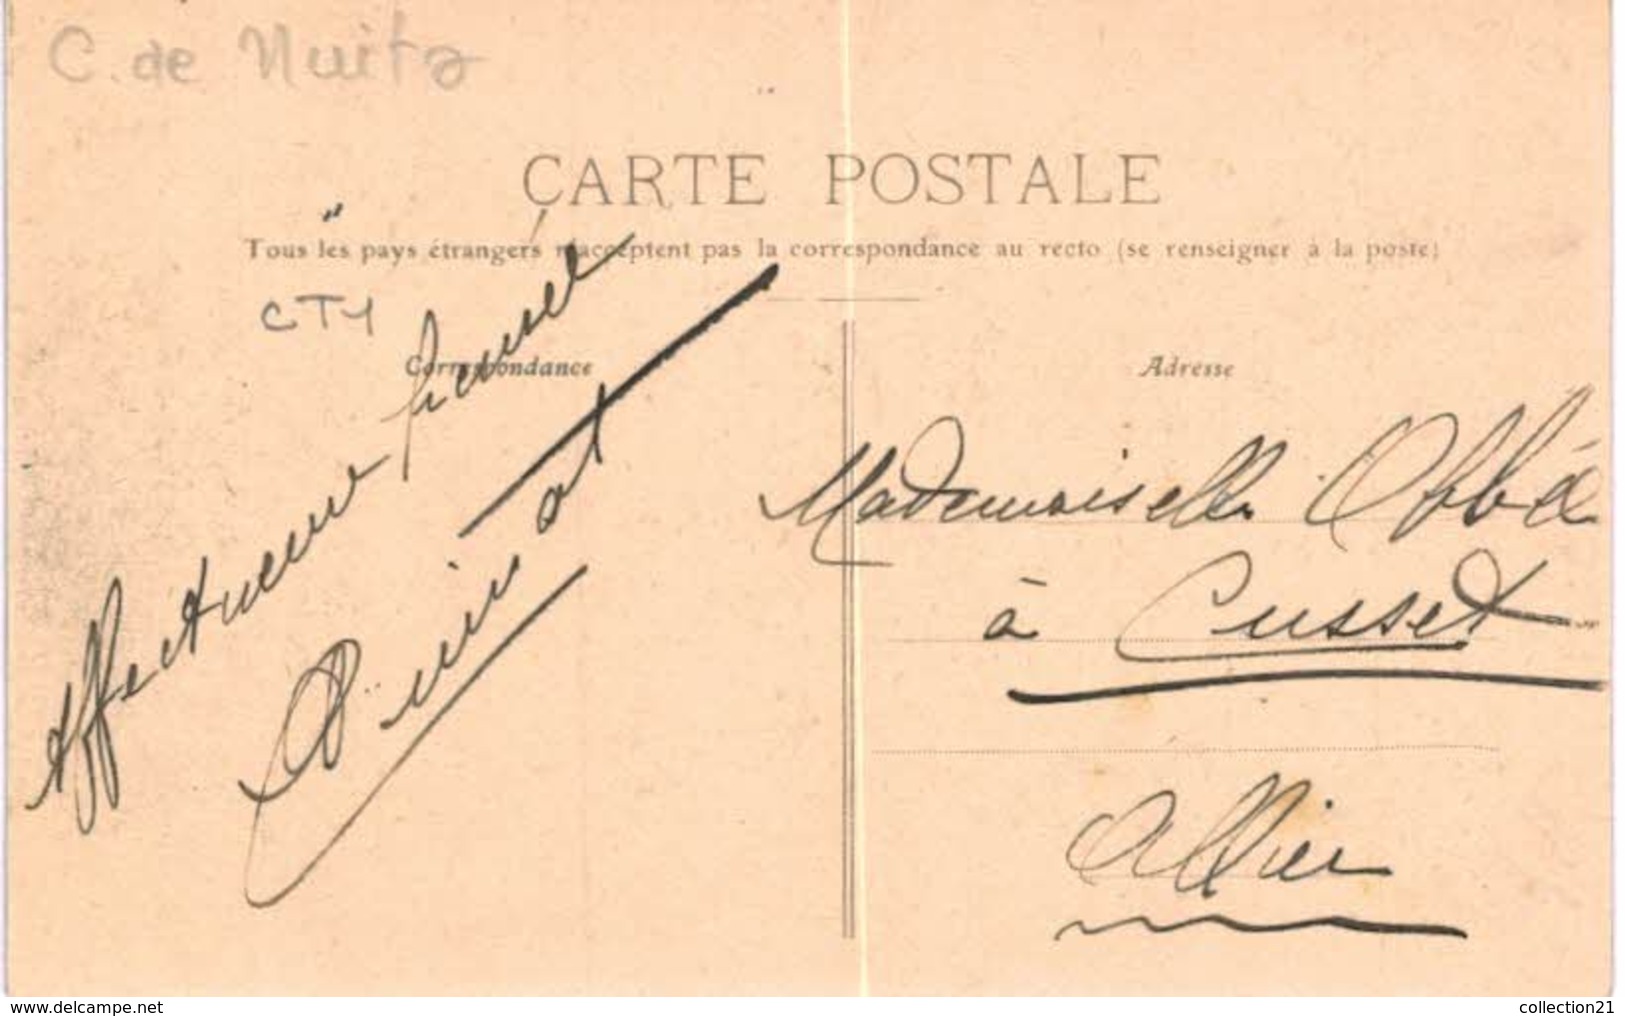 C. de Nuits
CARTE POSTALE
Tous les pays étrangers n'acceptent pas la correspondance au recto (se renseigner à la poste)
CTY
Correspondance
Affectueuse pensée
Adresse
Mademoiselle
à Cusset
Allier
www.delcampe.net
collection21